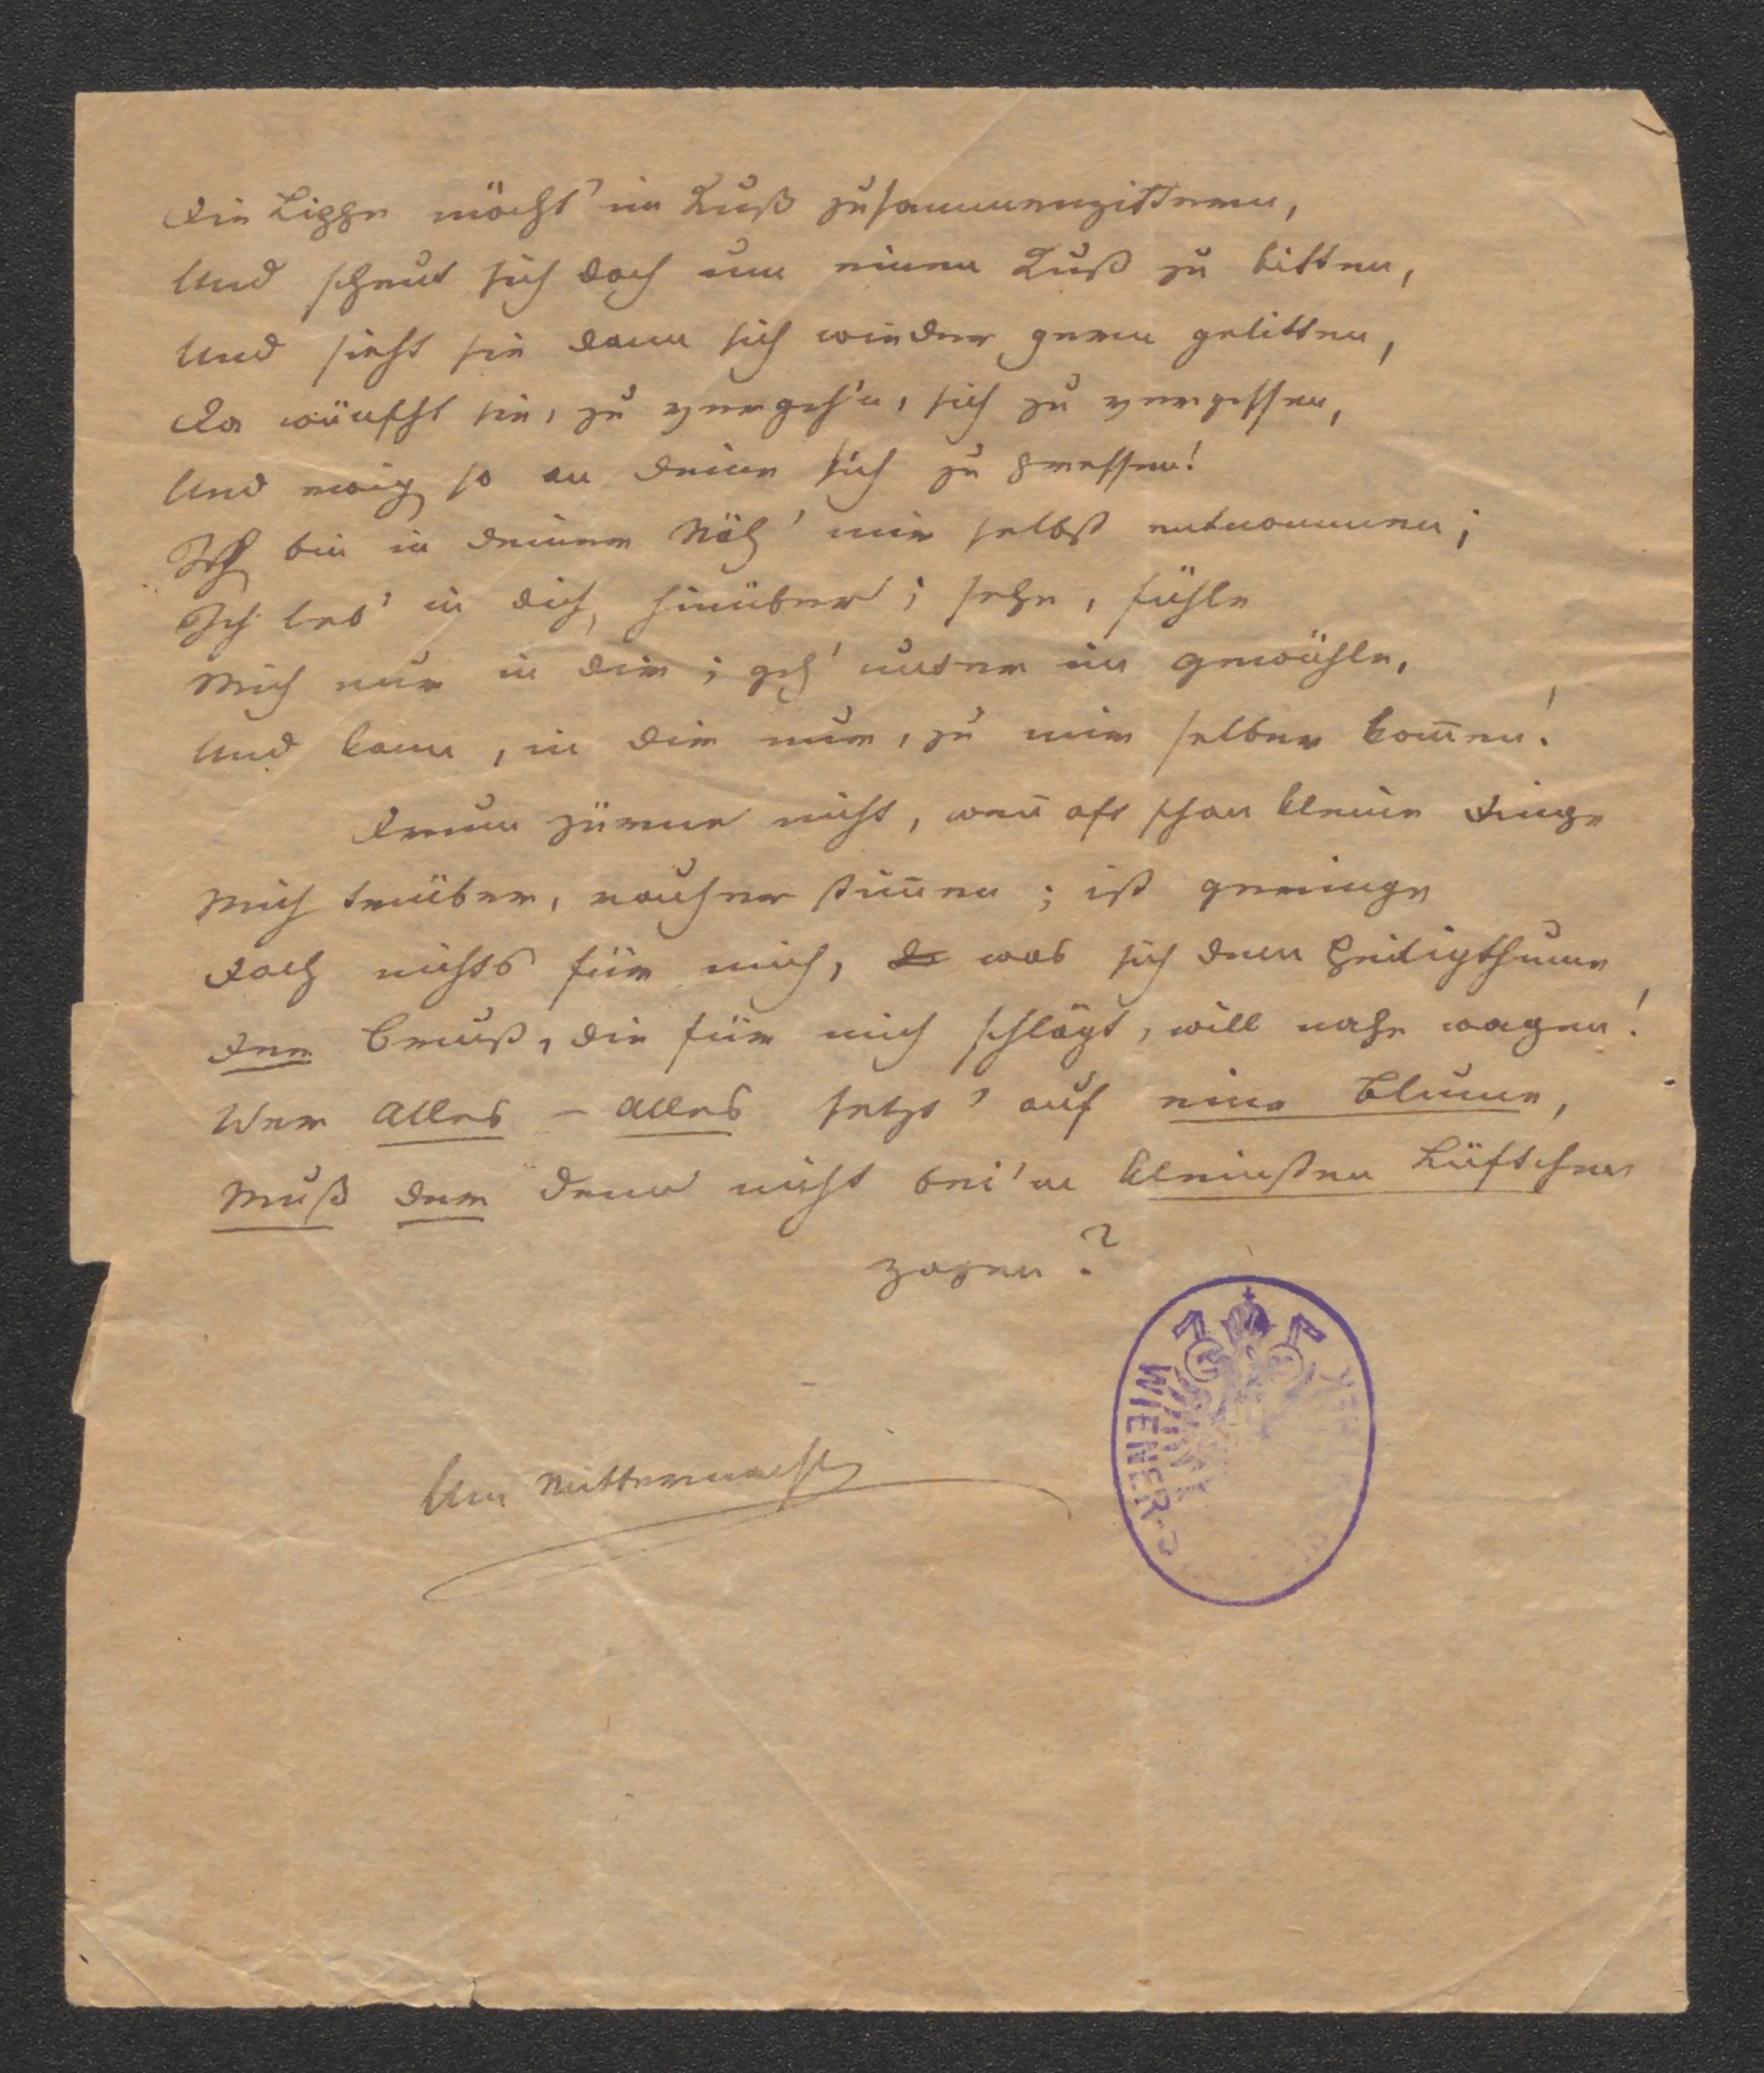 Die Lippe möcht' im Kuß zusammenzittern,
Und scheut sich doch um einen Kuß zu bitten,
Und sieht sie dann sich wieder gern gelitten,
Da wünscht sie, zu vergeh'n, sich zu vergessen,
Und ewig so an deine sich zu pressen!
Ich bin in deiner Näh' mir selbst entnommen;
Ich leb' in dich hinüber; sehe, fühle
Mich nur in dir; geh' unter im Gewühle,
Und kann, in dir nur, zu mir selber kom̄en!
Drum zürne nicht, wen̄ oft schon kleine Dinge
Mich trüber, rauher stim̄en; ist geringe
Doch nichts für mich, was sich dem Heiligthume
Der Brust, die für mich schlägt, will nahe wagen!
Wer Alles – Alles setzt' auf eine Blume,
Muß der denn nicht bei'm kleinsten Lüftchen
zagen?
Um Mitternacht
WIENER